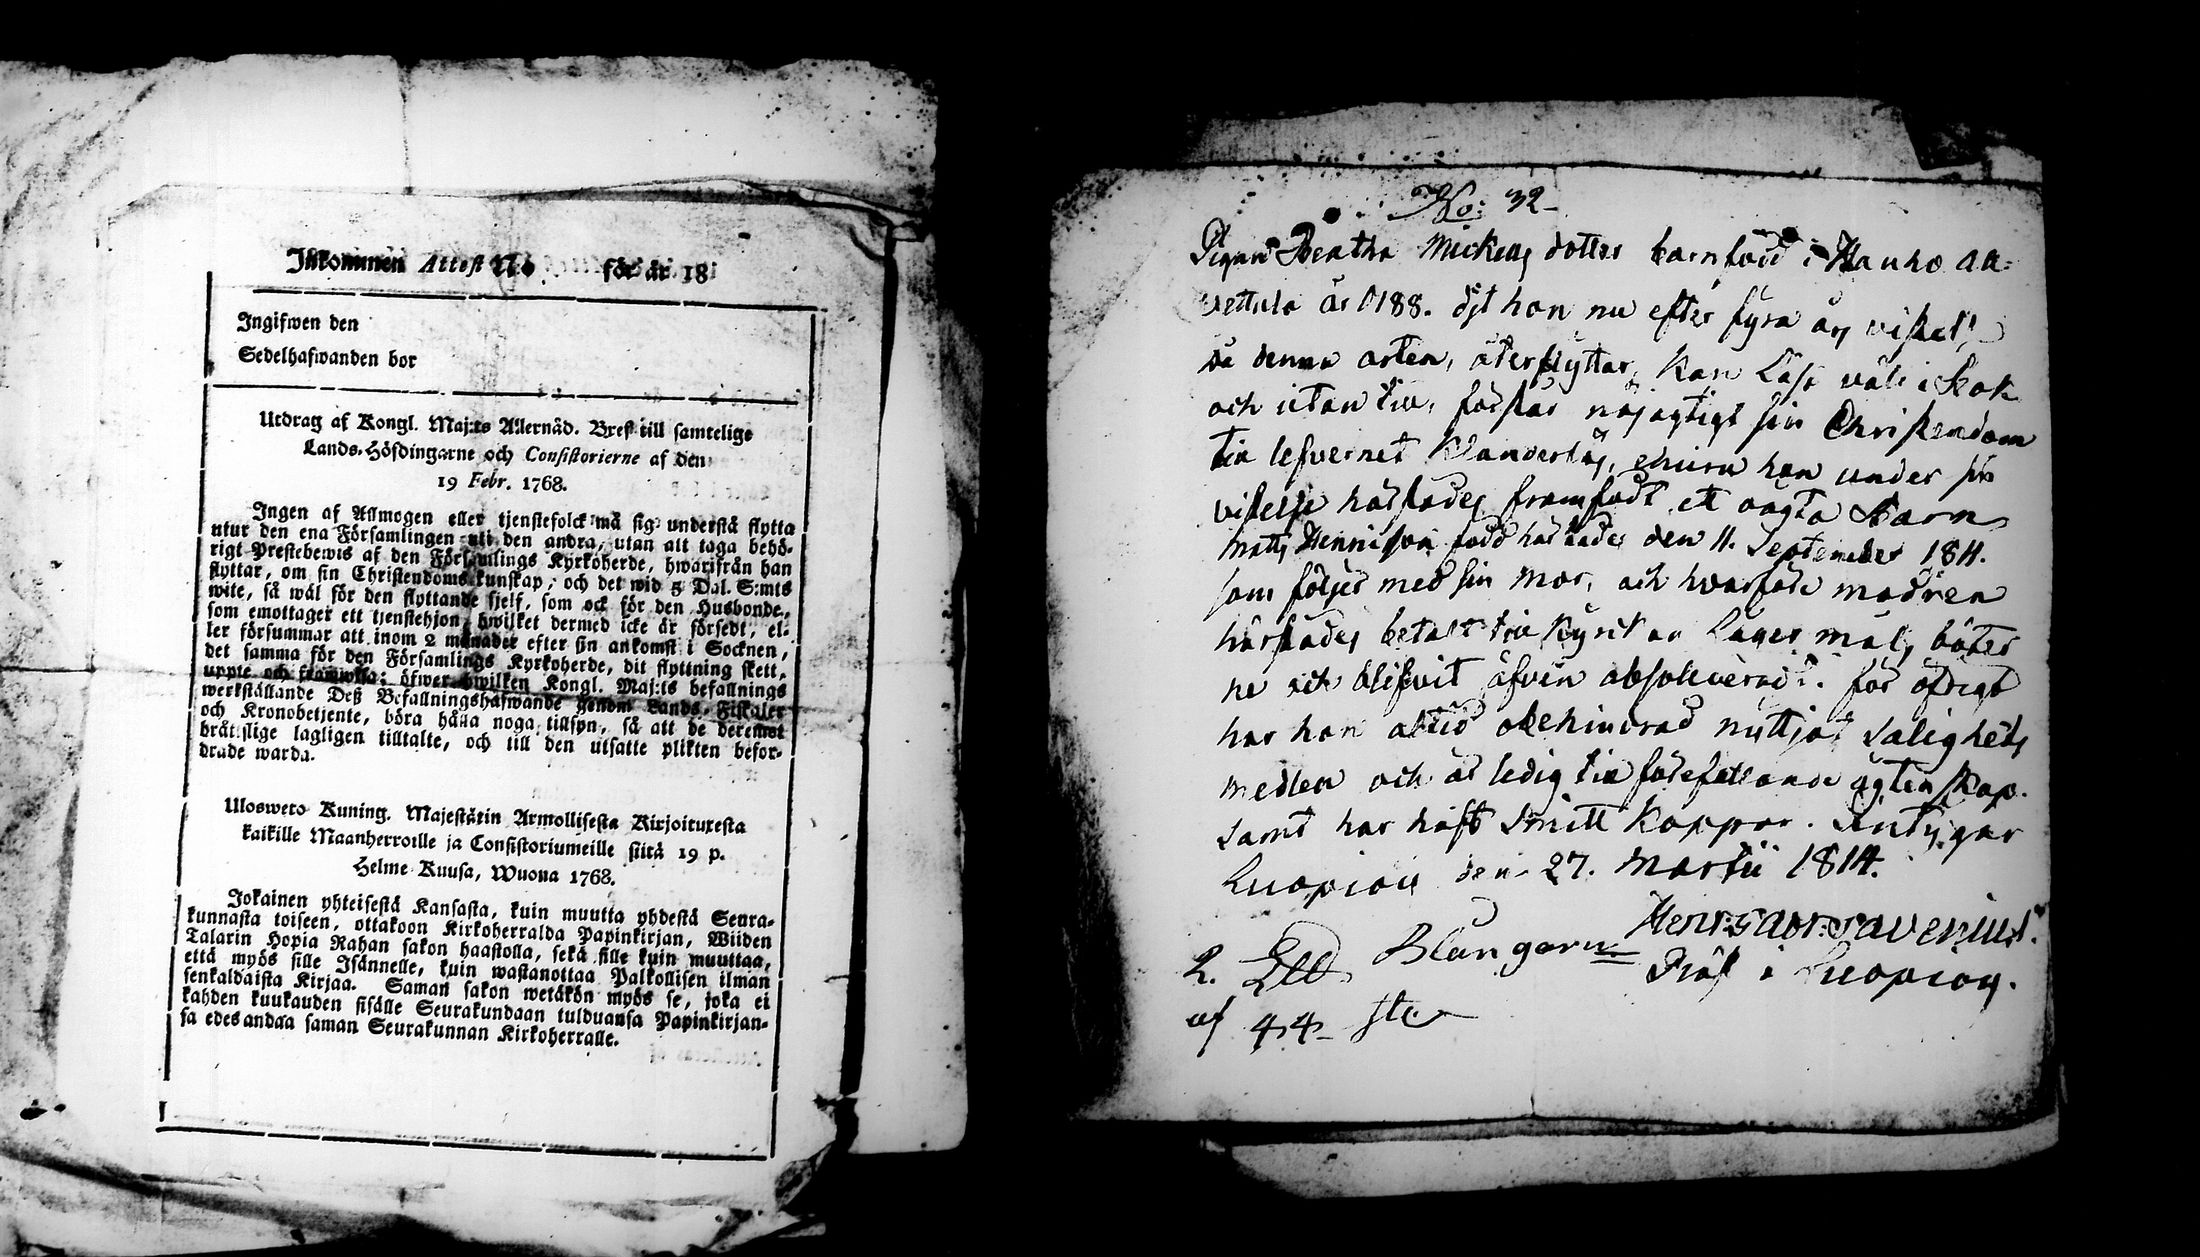 Inkommen Attest No för år 18
Ingifwen den
Sedelhafwanden bor
Utdrag af Kongl. Maj:ts Allernåd. Bref till samtelige
Lands-Höfdingarne och Consistorierne af den
19 Febr. 1768.
Ingen af Allmogen eller tjenstefolck må sig understå flytta
utur den ena Församlingen uti den andra, utan att taga behö-
rigt Prestebewis af den Församlings Kyrkoherde, hwarifrån han
flyttar, om sin Christendoms kunskap, och det wid 5 Dal. S:mts
wite, så wäl för den flyttande sjelf, som ock för den Husbonde,
som emottager ett tjenstehjon, hwilket dermed icke är försedt, el-
ler försummar att inom 2 månader efter sin ankomst i Socknen,
det samma för den Församlings Kyrkoherde, dit flyttning skett,
uppte och framwisa; öfwer hwilken Kongl. Maj:ts befallnings
werkställande Deß Befallningshafwande genom Lands-Fiskaler
och Kronobetjente, böra hålla noga tillsyn, så att de deremot
bråttslige lagligen tilltalte, och till den utsatte plikten befor-
drade warda.
Ulosweto Kuning. Majestätin Armollisesta Kirjoituxesta
kaikille Maanherroille ja Consistoriumeille siitä 19 p.
Helme Kuusa, Wuona 1768.
Jokainen yhteisestä Kansasta, kuin muutta yhdestä Seura-
kunnasta toiseen, ottakoon Kirkoherralda Papinkirjan, Wiiden
Talarin Hopia Rahan sakon haastolla, sekä sille kuin muuttaa,
että myös sille Isännelle, kuin wastanottaa Palkollisen ilman
senkaldaista Kirjaa. Saman sakon wetäkön myös se, joka ei
kahden kuukauden sisälle Seurakundaan tulduansa Papinkirjan-
sa edesandaa saman Seurakunnan Kirkoherralle.
No: 32
Pigan Beatha Mickels dotter barnfödd i Hauho
år 1788. dit hon nu efter fyra års vistel
se denna orten, återflyttar, kan Läsa väl i Bok
och utan till, förstår nöjagtigt sin Christendom
till lefvernet Klanderlös, ehuru hon under sin
vistelse härstädes framfödt ett oägta Barn
Matts Henrisson född härstädes den 11. September 1811.
som följer med sin Mor, och hvarföre modren
härstädes betalt till Kyrkan Lägersmåls böter
ne och blifvit äfven absolverad. för öfrigt
har hon altid obehindrad nyttjat Salighets
medlen och är ledig till förefallande ägtenskap.
samt har haft Smitt Koppor. Intygar
Luopiois den 27. Martii 1814.
Henr: Gabr: Gavenius.
Präst i Luopiois.